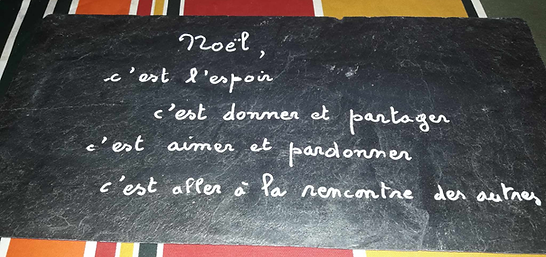 Noël,
c'est l'espoir
c'est donner et partager
c'est aimer et pardonner
c'est aller à la rencontre des autres